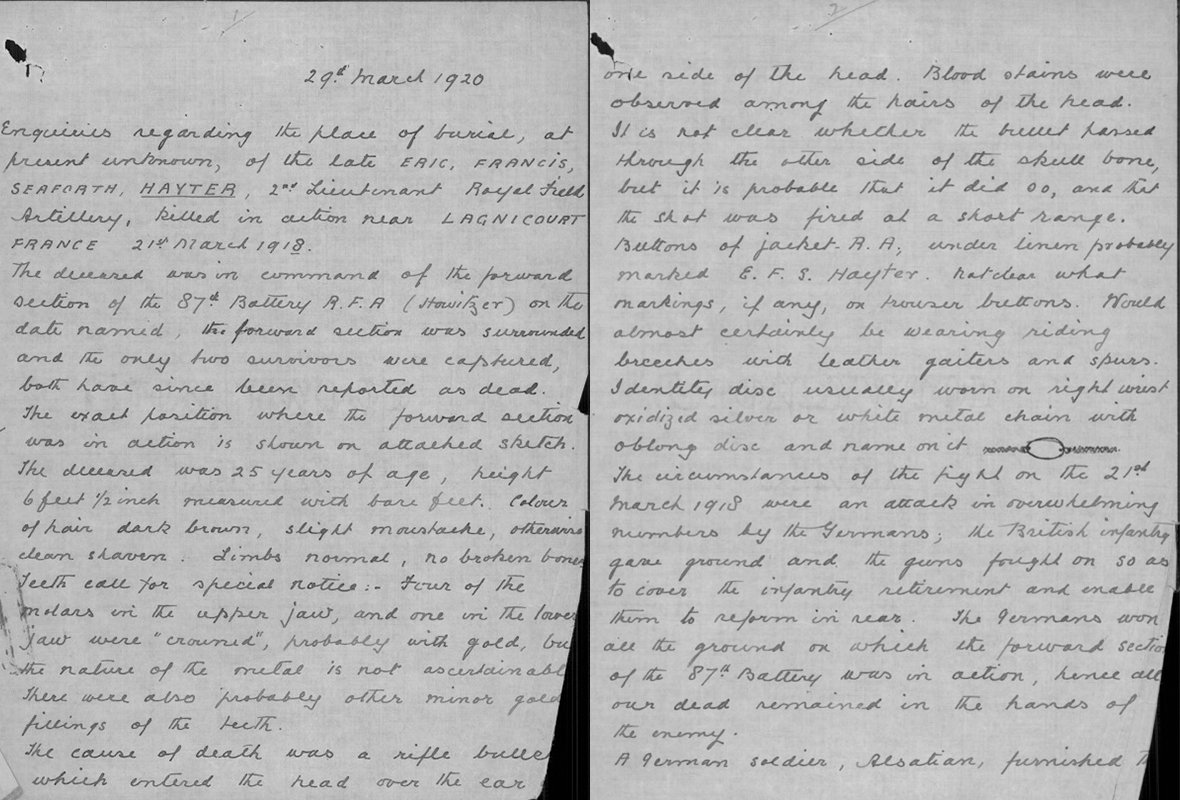 1
29th March 1920
Enquiries regarding the place of burial, at
present unknown, of the late ERIC, FRANCIS,
SEAFORTH, HAYTER, 2nd Lieutenant Royal Field
Artillery, killed in action near LAGNICOURT
FRANCE 21st March 1918.
The deceased was in command of the forward
section of the 87th Battery R.F.A (Howitzer) on the
date named, the forward section was surrounded
and the only two survivors were captured,
both have since been reported as dead.
The exact position where the forward section
was in action is shown on attached sketch.
The deceased was 25 years of age, height
6 feet ½ inch measured with bare feet. Colour
of hair dark brown, slight moustache, otherwise
clean shaven. Limbs normal, no broken bones
Teeth call for special notice:- Four of the
molars in the upper jaw, and one in the lower
jaw were "crowned", probably with gold, but
the nature of the metal is not ascertainabl
There were also probably other minor gold
fillings of the teeth.
The cause of death was a rifle bulle
which entered the head over the ear
2
one side of the head. Blood stains were
observed among the hairs of the head.
It is not clear whether the bullet passed
through the other side of the skull bone,
but it is probable that it did so, and that
the shot was fired at a short range.
Buttons of jacket R.A; under linen probably
marked E. F. S. Hayter. Not clear what
markings, if any, on trouser buttons. Would
almost certainly be wearing riding
breeches with leather gaiters and spurs.
Identity disc usually worn on right wrist
oxidized silver or white metal chain with
oblong disc and name on it
The circumstances of the fight on the 21st
March 1918 were an attack in overwhelming
numbers by the Germans; the British infantry
gave ground and the guns fought on so as
to cover the infantry retirement and enable
them to reform in rear. The Germans won
all the ground on which the forward section
of the 87th Battery was in action, hence all
our dead remained in the hands of
the enemy.
A German soldier, Alsatian, furnished